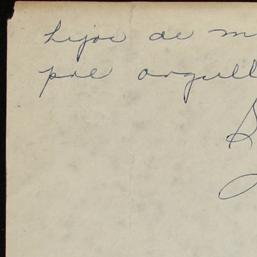 hijos de m
por orgull